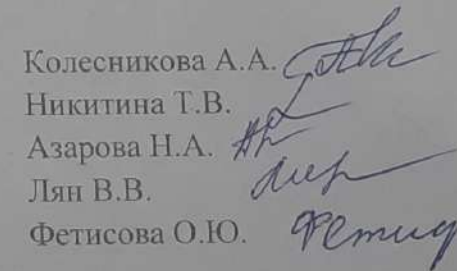 Колесникова А.А.
Никитина Т.В.
Азарова Н.А.
Лян В.В.
Фетисова О.Ю.